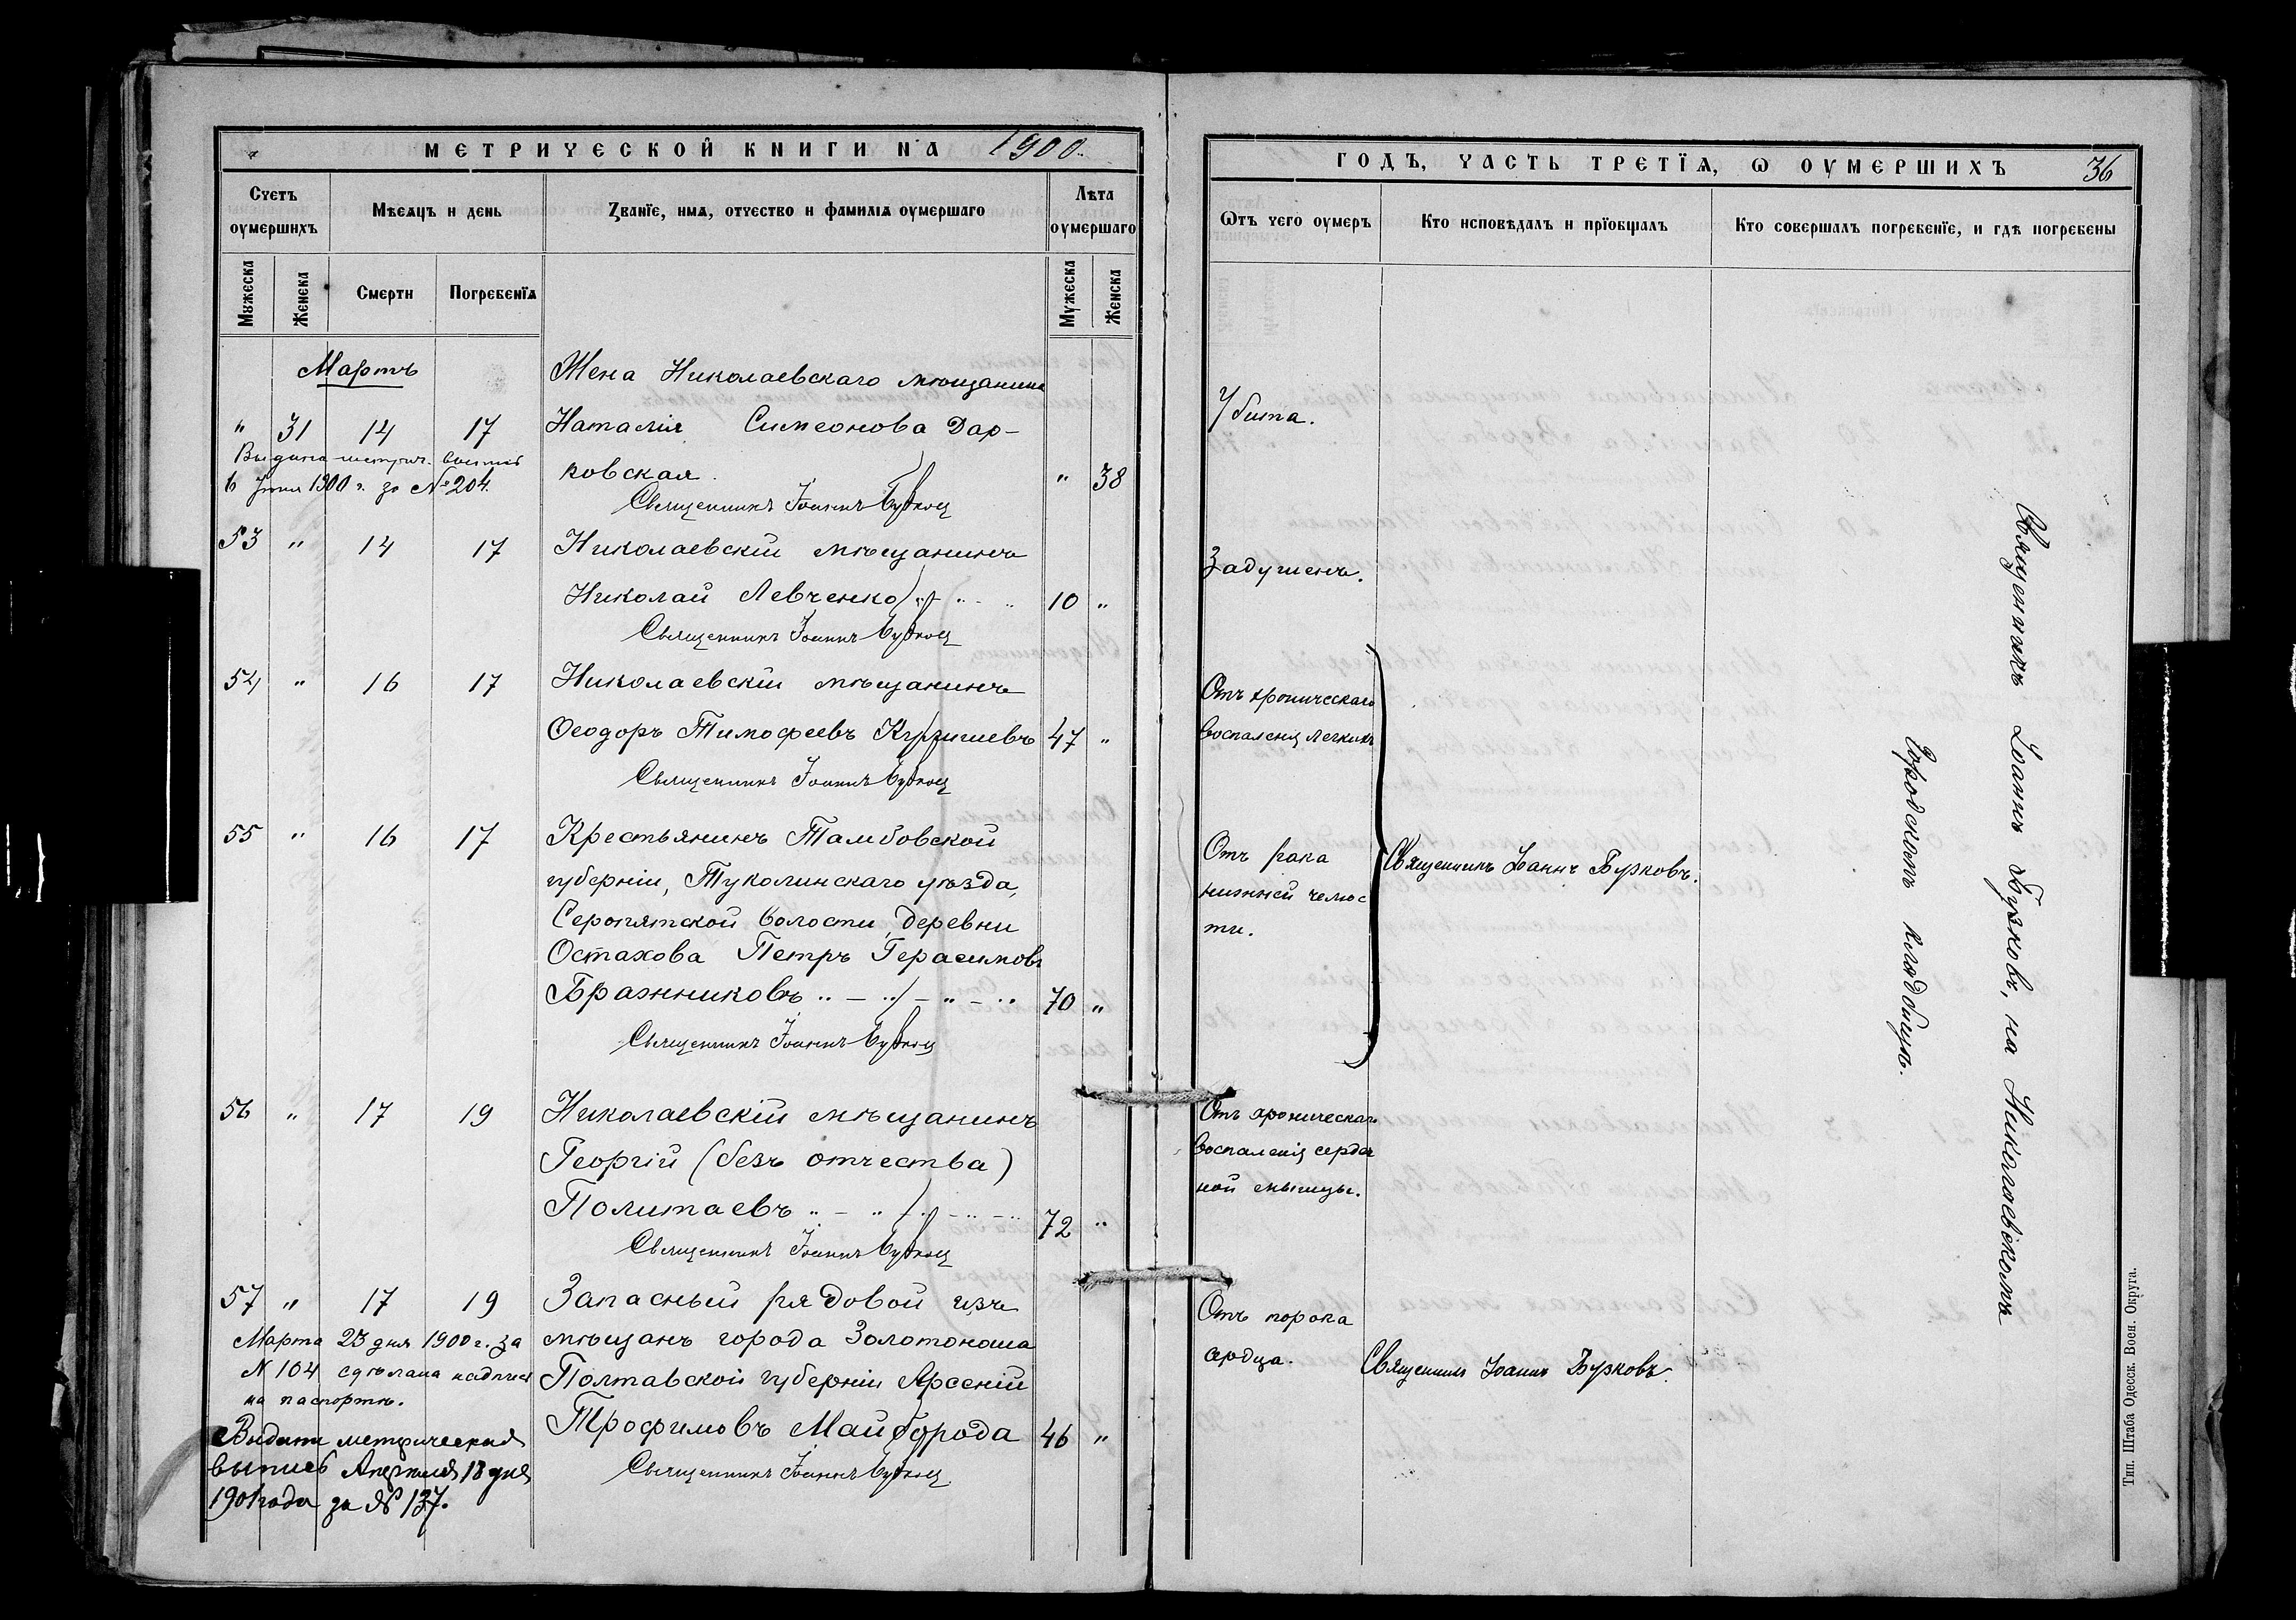 МЕТРИЧЕСКОЙ КНИГИ НА 1900
Счетъ оумершихъ
Мѣсяцъ и день
Званїе, имя, отчество и фамилїя оумершаго
Лѣта оумершаго
Мужеска
Женска
Смерти
Погребенїя
Мужеска
Женска
Мартъ
Жена Николаевскаго мѣщанина
" 31 14 17 Наталія Симеонова Дар-
ковская. " 38
Выдана метрич.
6 1900 г. за № 204.
Священникъ Іоаннъ Бурковъ
53 " 14 17 Николаевскій мѣщанинъ
Николай Левченко 10 "
Священникъ Іоаннъ Бурковъ
54 " 16 17 Николаевскій мѣщанинъ
Ѳеодоръ Тимофеевъ 47 "
Священникъ Іоаннъ Бурковъ
55 " 16 17 Крестьянинъ Тамбовской
губерніи, Туколинскаго уѣзда,
Серопятской волости, деревни
Остахова Петръ Герасимовъ
Бражниковъ 70 "
Священникъ Іоаннъ Бурковъ
56 " 17 19 Николаевскій мѣщанинъ
Георгій (безъ отчества)
Политаевъ 72 "
Священникъ Іоаннъ Бурковъ
57 " 17 19 Запасный рядовой изъ
мѣщанъ города Золотоноша
Полтавской губерніи Арсеній
Трофимовъ Майборода 46 "
Священникъ Іоаннъ Бурковъ
Марта 23 дня 1900 г. за
N 104 сдѣлана надпись
на паспортѣ.
Выдана метрическая
выпись Апрѣля 18 дня
1901 года за № 137.
ГОДЪ, ЧАСТЬ ТРЕТЇЯ, Ѡ ОУМЕРШИХЪ 36
Ѿтъ чего оумеръ
Кто исповѣдалъ и прїобщалъ
Кто совершалъ погребенїе, и гдѣ погребены
Убита.
Задушенъ.
Отъ хроническаго
воспаленія легкихъ
Отъ рака
нижней челюс
ти.
Священникъ Іоаннъ Бурковъ.
Отъ хроническаго
воспаленія сердеч
ной мышцы.
Отъ порока
сердца.
Священникъ Іоаннъ Бурковъ.
Священникъ Іоаннъ Бурковъ, на Николаевскомъ
Городскомъ кладбищѣ.
Тип. Штаба Одесск. Воен. Округа.